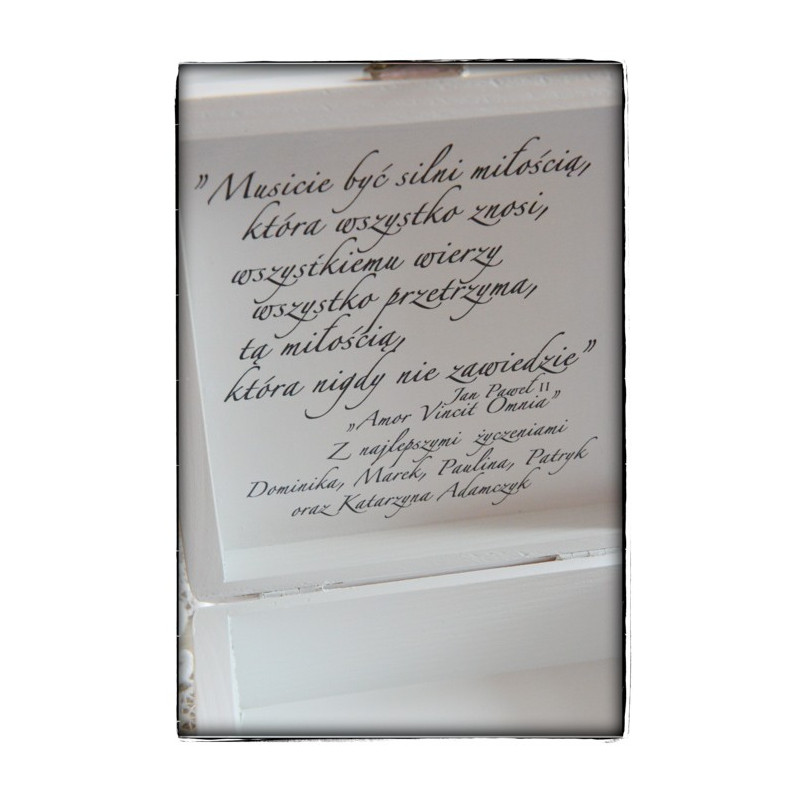 "Musicie być silni miłością,
która wszystko znosi,
wszystkiemu wierzy
wszystko przetrzyma,
tą miłością,
która nigdy nie zawiedzie"
Jan Paweł II
"Amor Vincit Omnia"
Z najlepszymi życzeniami
Dominika, Marek, Paulina, Patryk
oraz Katarzyna Adamczyk